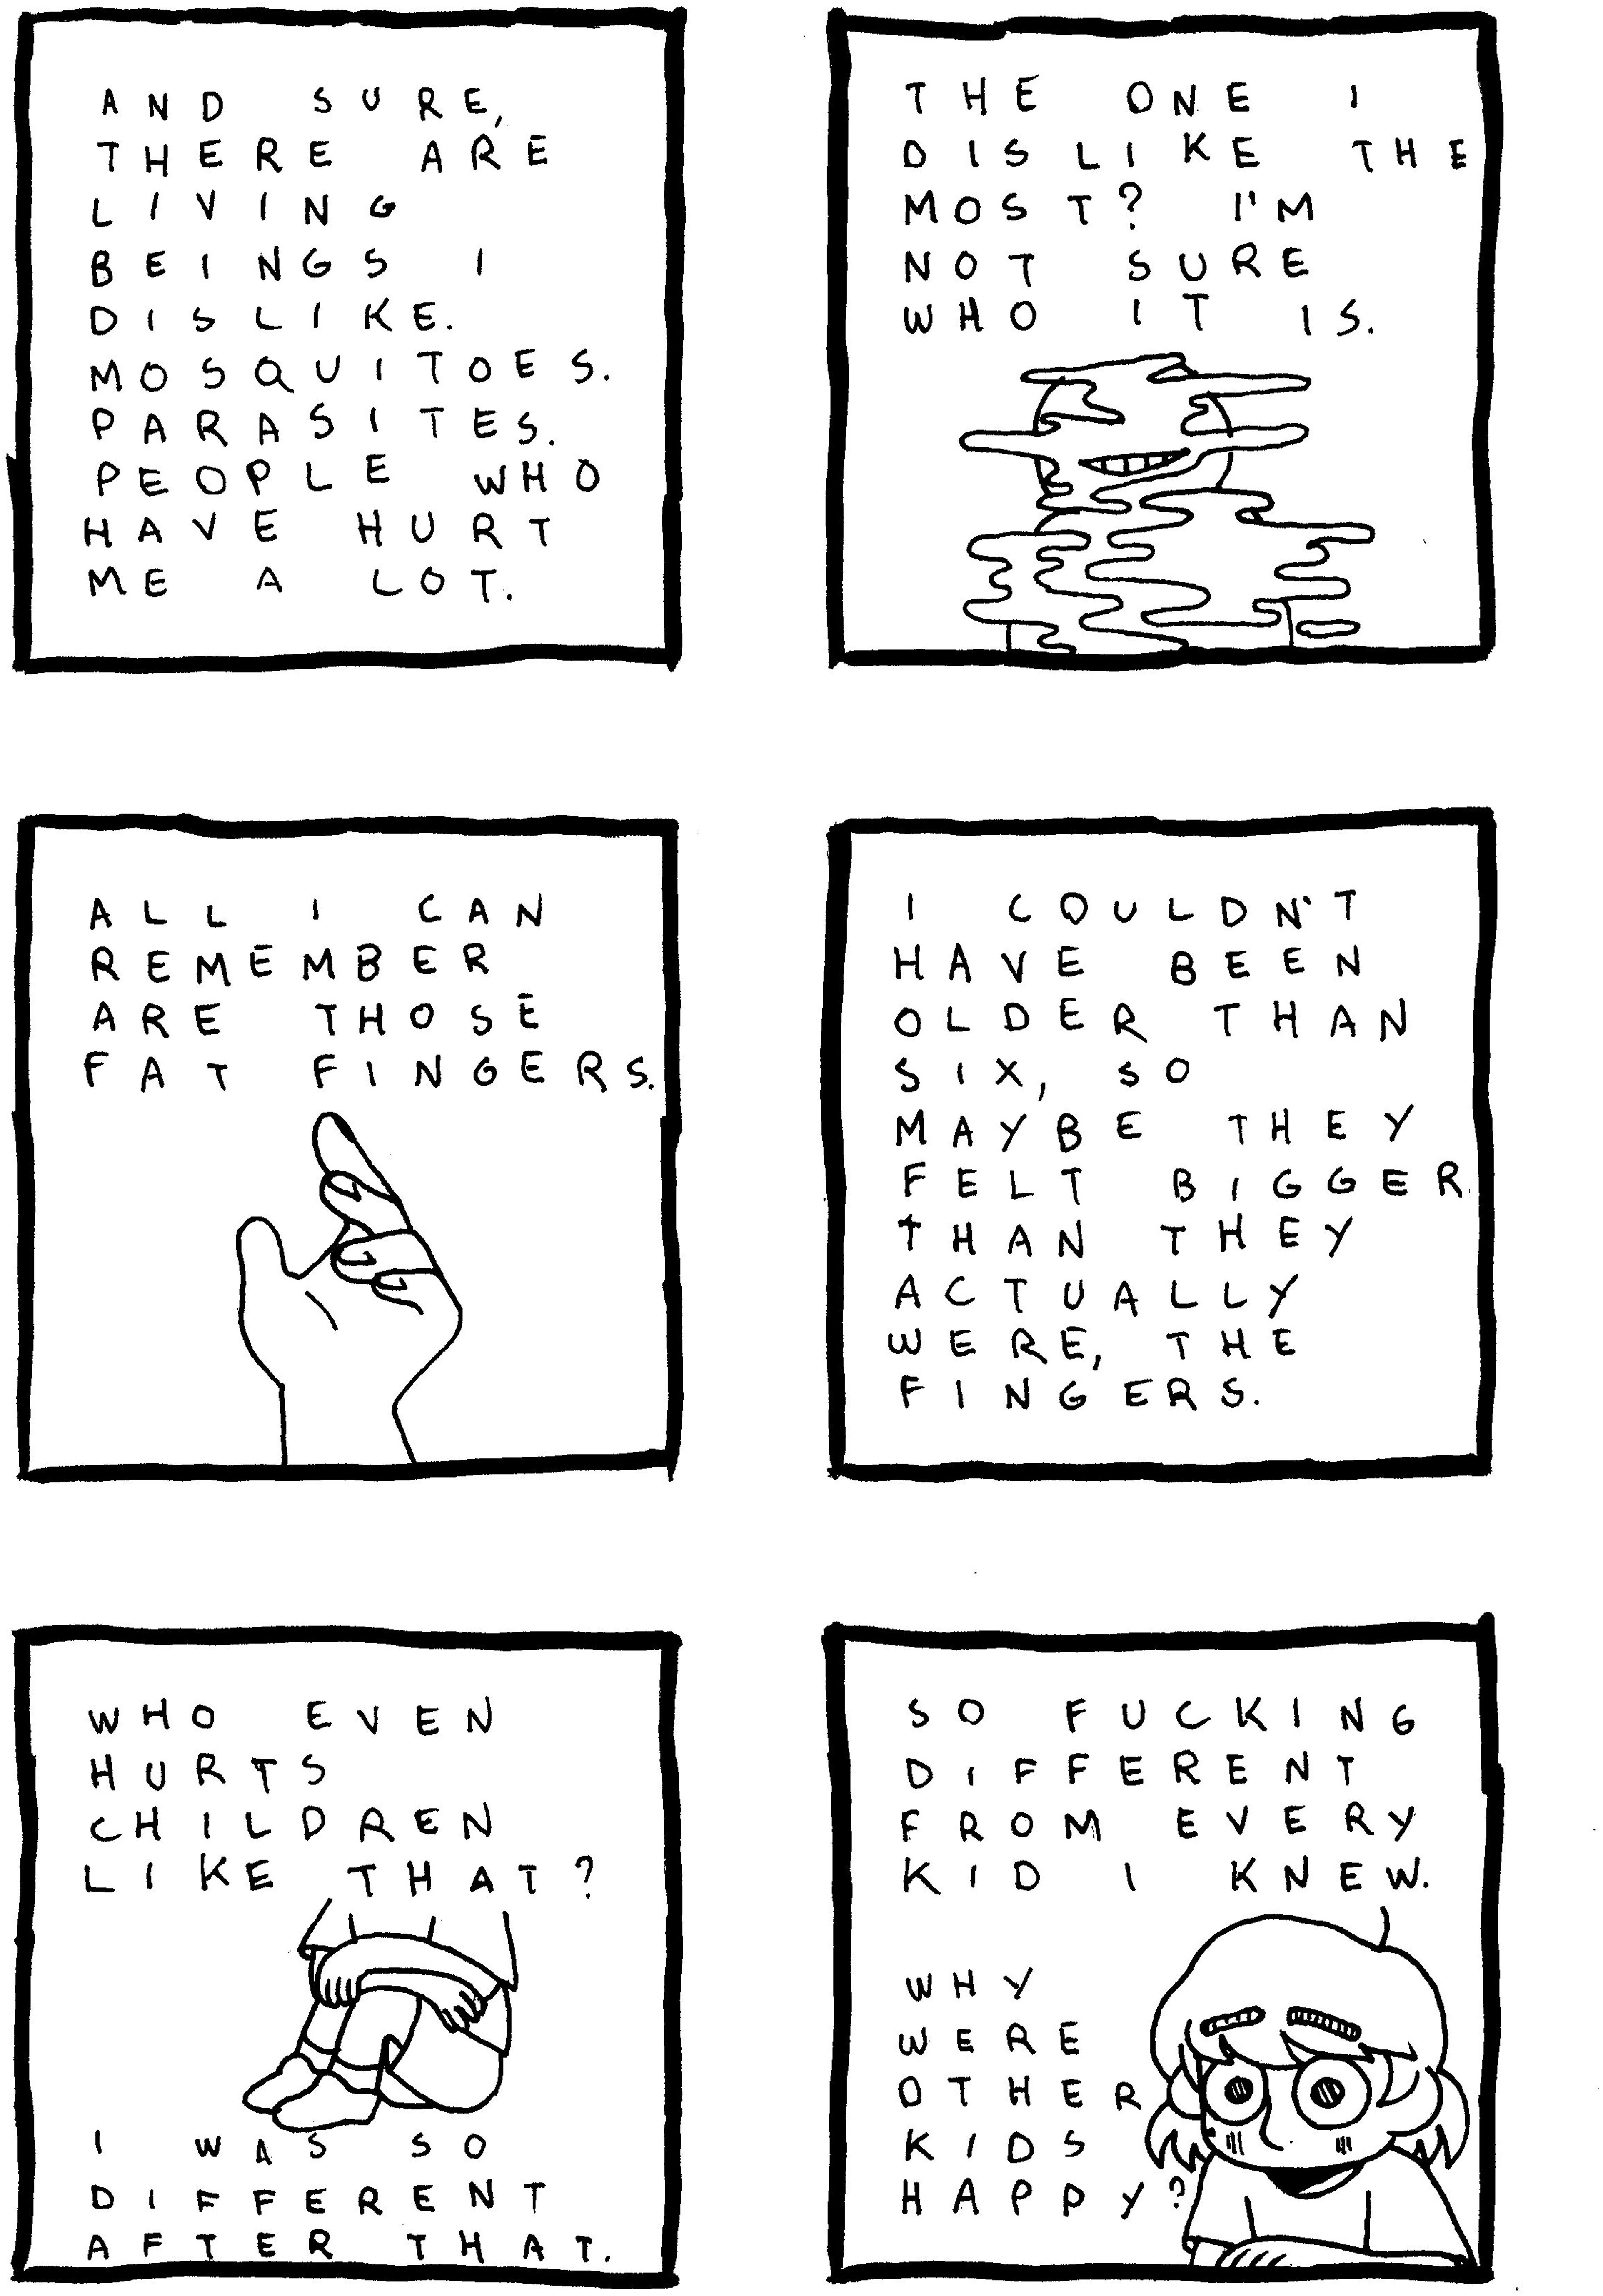 AND SURE,
THERE ARE
LIVING
BEINGS I
DISLIKE.
MOSQUITOES.
PARASITES.
PEOPLE WHO
HAVE HURT
ME A LOT.
THE ONE I
DISLIKE THE
MOST? I'M
NOT SURE
WHO IT IS.
ALL I CAN
REMEMBER
ARE THOSE
FAT FINGERS.
I COULDN'T
HAVE BEEN
OLDER THAN
SIX, SO
MAYBE THEY
FELT BIGGER
THAN THEY
ACTUALLY
WERE, THE
FINGERS.
WHO EVEN
HURTS
CHILDREN
LIKE THAT?
I WAS SO
DIFFERENT
AFTER THAT.
SO FUCKING
DIFFERENT
FROM EVERY
KID I KNEW.
WHY
WERE
OTHER
KIDS
HAPPY?